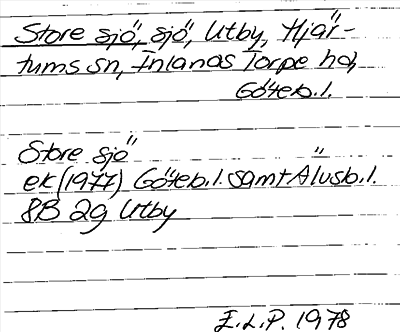 Store sjö, sjö, Utby, Hjär-
tums sn, Inlands Torpe hd,
Göteb.l.
Store sjö
ek (1977) Göteb.l. samt Älvsb.l.
8B 2g Utby
E.L.P. 1978